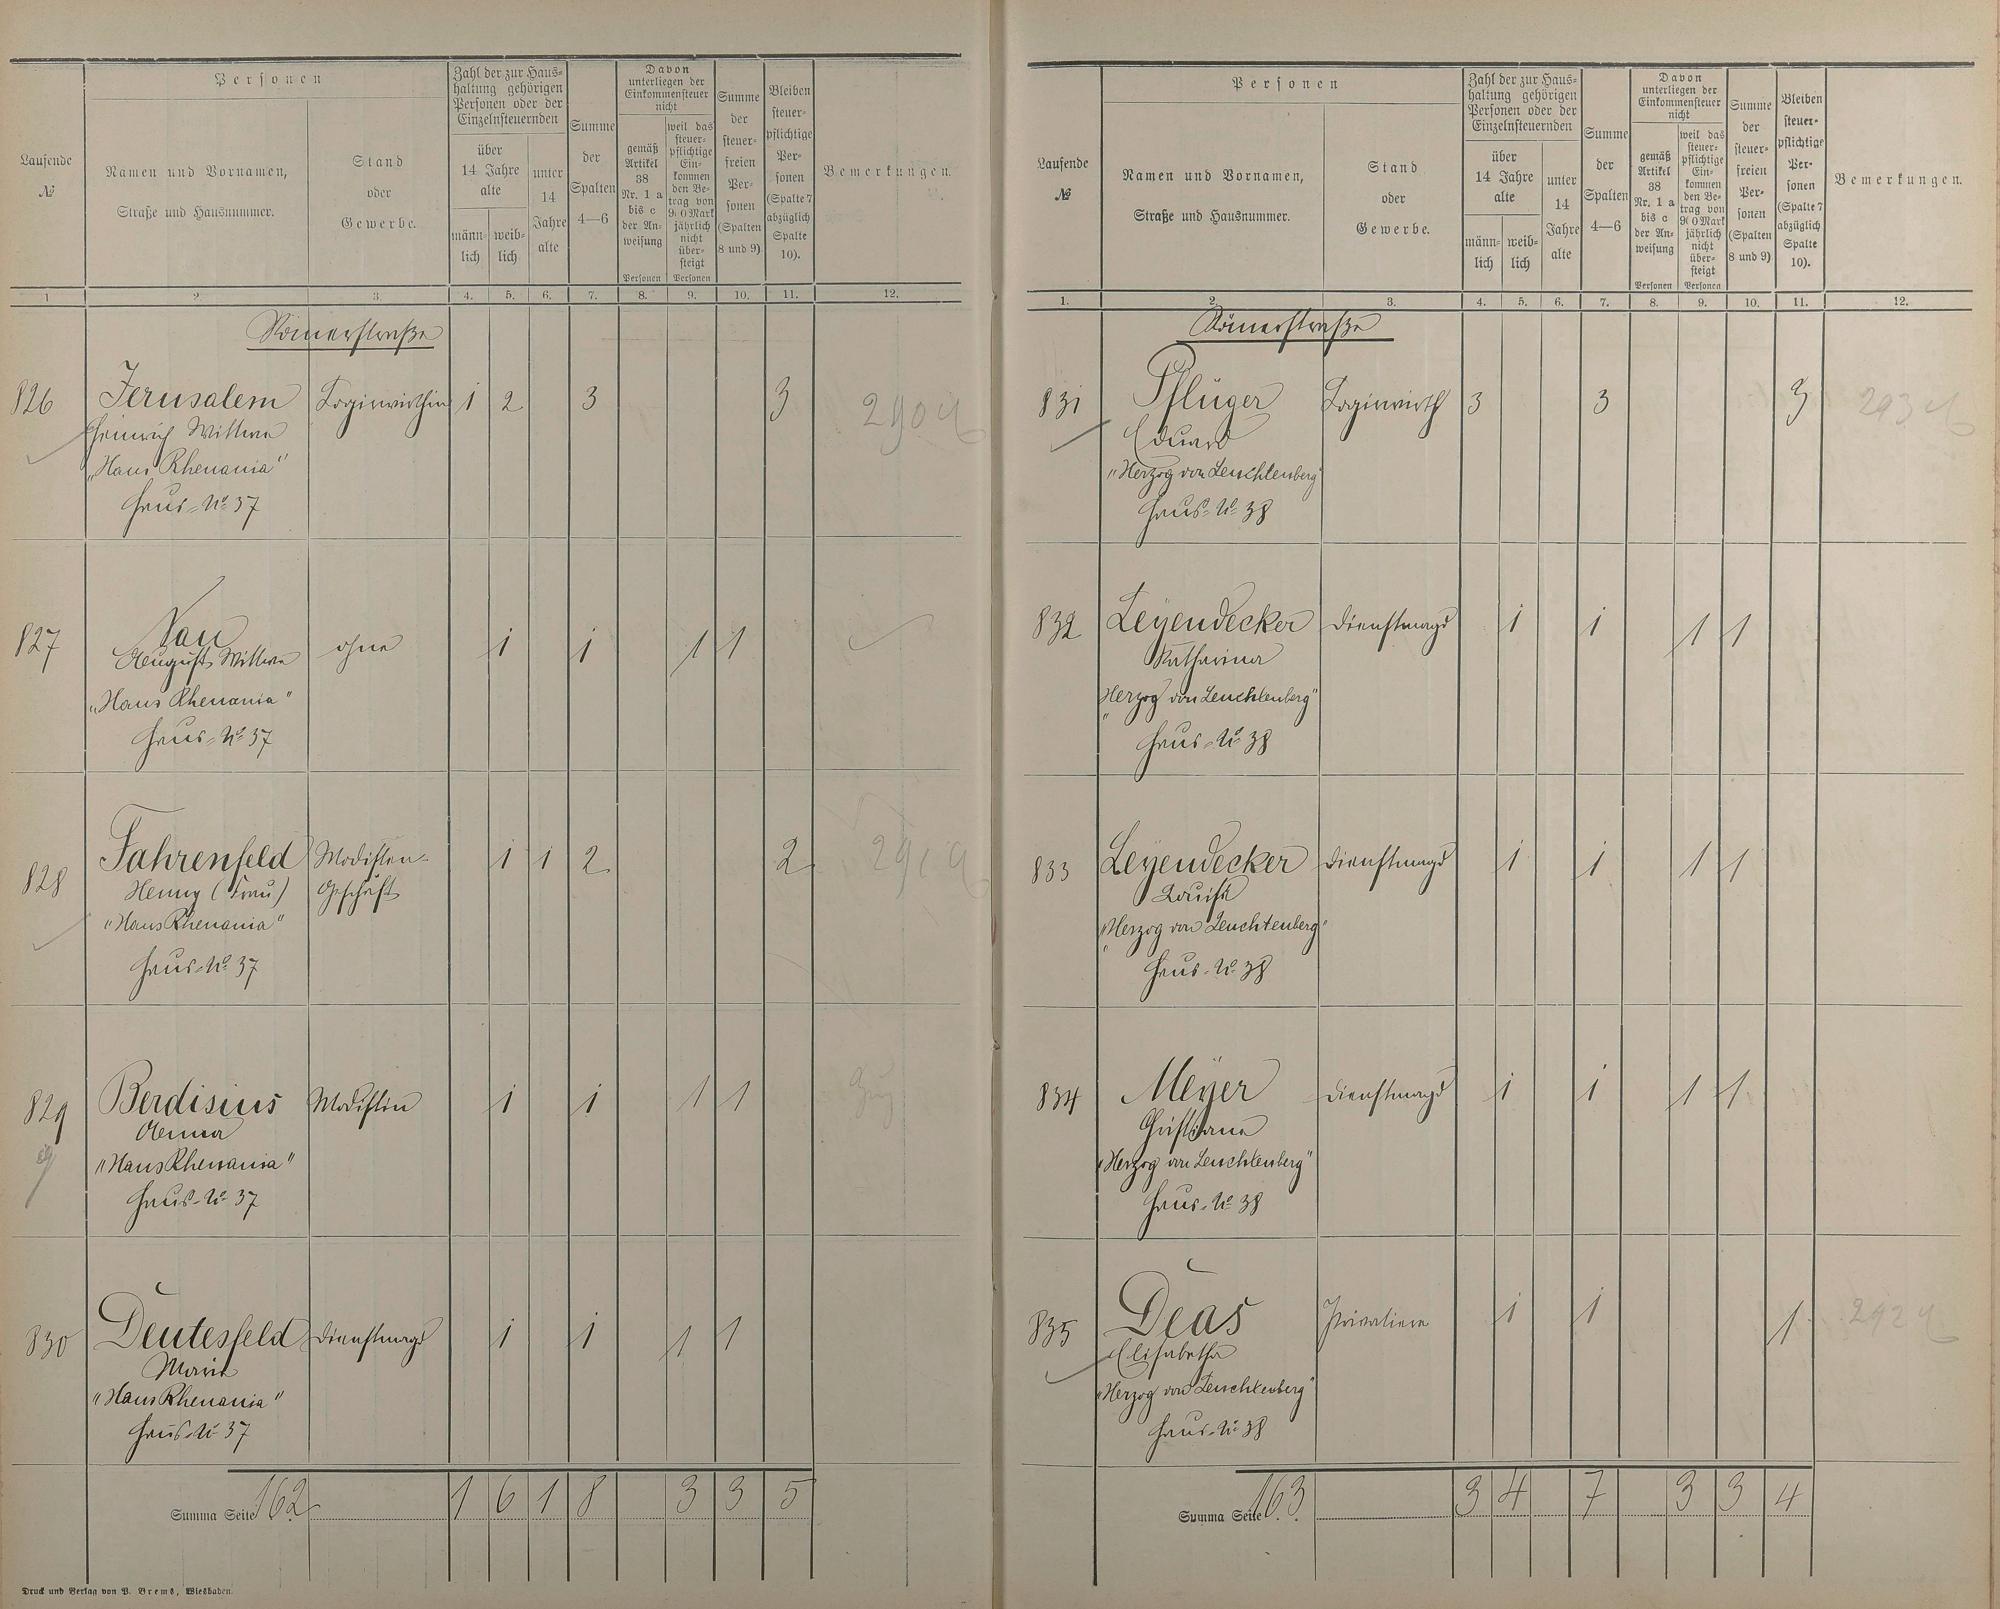 Laufende
№
Personen
Namen und Vornamen,
Straße und Hausnummer.
Stand
oder
Gewerbe.
Zahl der zur Haus-
haltung gehörigen
Personen oder der
Einzelnsteuernden
über
14 Jahre
alte
männ-
lich
weib-
lich
unter
14
Jahre
alte
Summe
der
Spalten
4—6
Davon
unterliegen der
Einkommensteuer
nicht
gemäß
Artikel
38
Nr. 1 a
bis c
der An-
weisung
Personen
weil das
steuer-
pflichtige
Ein-
kommen
den Be-
trag von
900 Mark
jährlich
nicht
über-
steigt
Personen
Summe
der
steuer-
freien
Per-
sonen
(Spalten
8 und 9)
Bleiben
steuer-
pflichtige
Per-
sonen
(Spalte 7
abzüglich
Spalte
10).
Bemerkungen.
1 2. 3. 4. 5. 6. 7. 8. 9. 10. 11. 12.
Römerstraße
826 Jerusalem Logirwirthin 1 2 3 3 290
Heinrich Wittwe
"Haus Rhenania"
Haus-No 37
827 Nau ohne 1 1 1 1
August Wittwe
"Haus Rhenania"
Haus-No 37
828 Fahrenfeld Modisten- 1 1 2 2 291
Henny (Frau) Geschäft
"Haus Rhenania"
Haus-No 37
829 Berdisius Modistin 1 1 1 1
Anna
"Haus Rhenania"
Haus-No 37
830 Deutesfeld Dienstmagd 1 1 1 1
Maria
"Haus Rhenania"
Haus-No 37
Summa Seite 162 1 6 1 8 3 3 5
Druck und Verlag von P. Brems, Wiesbaden.
Laufende
№
Personen
Namen und Vornamen,
Straße und Hausnummer.
Stand
oder
Gewerbe.
Zahl der zur Haus-
haltung gehörigen
Personen oder der
Einzelnsteuernden
über
14 Jahre
alte
männ-
lich
weib-
lich
unter
14
Jahre
alte
Summe
der
Spalten
4—6
Davon
unterliegen der
Einkommensteuer
nicht
gemäß
Artikel
38
Nr. 1 a
bis c
der An-
weisung
Personen
weil das
steuer-
pflichtige
Ein-
kommen
den Be-
trag von
900 Mark
jährlich
nicht
über-
steigt
Personen
Summe
der
steuer-
freien
Per-
sonen
(Spalten
8 und 9)
Bleiben
steuer-
pflichtige
Per-
sonen
(Spalte 7
abzüglich
Spalte
10).
Bemerkungen.
1. 2. 3. 4. 5. 6. 7. 8. 9. 10. 11. 12.
Römerstraße
831 Pflüger Logirwirth 3 3 3 293
Eduard
"Herzog von Leuchtenberg"
Haus-No 38
832 Leyendecker Dienstmagd 1 1 1 1
Katharina
"Herzog von Leuchtenberg"
Haus-No 38
833 Leyendecker Dienstmagd 1 1 1 1
Louise
"Herzog von Leuchtenberg"
Haus-No 38
834 Meyer Dienstmagd 1 1 1 1
Christiane
"Herzog von Leuchtenberg"
Haus-No 38
835 Deas Privatiere 1 1 1 292
Elisabetha
"Herzog von Leuchtenberg"
Haus-No 38
Summa Seite 163. 3 4 7 3 3 4